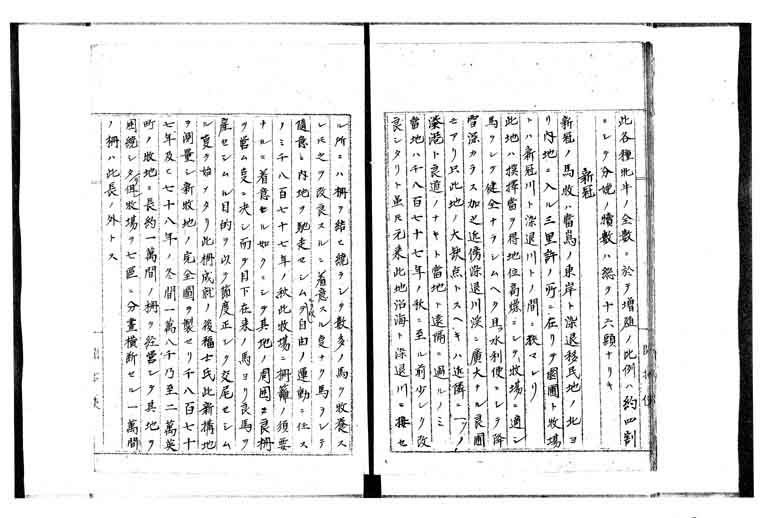 此各種牝牛ノ全数ニ於テ増殖ノ比例ハ約四割
ニシテ分娩ノ犢数ハ総テ十六頭ナリキ
新冠
新冠ノ馬牧ハ當島ノ東岸ト染退移民地ノ北ヨ
リ内地ニ入ル三里許ノ所ニ在リテ園圃ト牧場
トハ新冠川ト染退川トノ間ニ狹マレリ
此地ハ撰擇當ヲ得地位高燥ニシテ牧場ニ適シ
馬ヲシテ健全ナラシムヘク且水利便ニシテ降
雪深カラス加之近傍染退川渓ニ廣大ナル良圃
モアリ只此地ノ大欠点トスヘキハ近隣ニ一ノ
湊港ト良道ノナキト當地ト遠隔ニ過ルノミ
當地ハ千八百七十七年ノ秋ニ至ル前少シク改
良シタリト虽圧元来此地沿海ト染退川ニ接セ
ル所ニハ柵ヲ結セ繞ラシテ数多ノ馬ヲ牧養ス
レ圧之ヲ改良スルニ着意スル莫ナク馬ヲシテ
随意ニ内地ヲ馳走セシムヲ自由ノ運動ニ任ス
ノミ千八百七十七年ノ秋此牧場ニ柵籬ノ須要
ナルニ着意セル如クニシテ其地ノ周囲ヱ良柵
ヲ営ム莫ニ決シ而テ目下在来ノ馬ヨリ良馬ヲ
産セシムル目的ヲ以テ節度正シク交尾セシム
ル莫ヲ始メタリ此柵成就ノ後福士氏此新構地
ヲ測量シ新牧地ノ完全圖ヲ製セリ千八百七十
七年及ヒ七十八年ノ冬間一萬八千乃至二萬英
町ノ牧地ニ長約一萬間ノ柵ヲ経営シテ其地ヲ
囲繞シタリ但牧場ヲ七區ニ分畫横断セル一萬間
ノ柵ハ此長ノ外トス